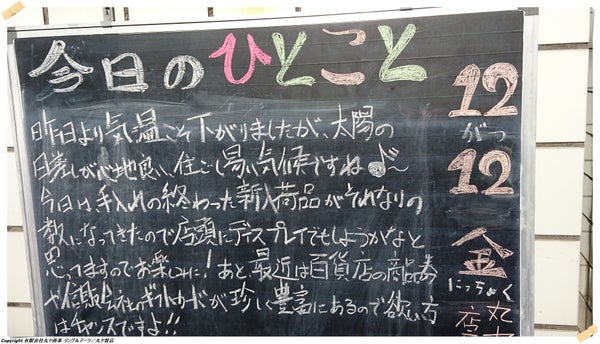 今日のひとこと
昨日より気温こそ下がりましたが、太陽の
日差しが心地良い、住ごし易い気候ですね♪〜
今日は、手入れの終わった新入荷品がそれなりの
数になってきたので店頭にディスプレイでもしようかなと
思ってますのでお楽しみに!あと最近は百貨店の商品券
や信販会社のギフトカードが珍しく豊富にあるので欲しい方
はチャンスですよ!!
12
がつ
12
金
にっちょく
店
Copyright 有限会社丸や商事 リングルアーツ/丸や質店